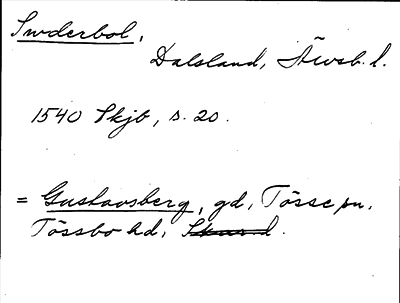 Swderbol,
Dalsland, Älvsb. l.
1540 Skjb, s. 20.
= Gustavsberg, gd, Tösse sn,
Tössbo hd,